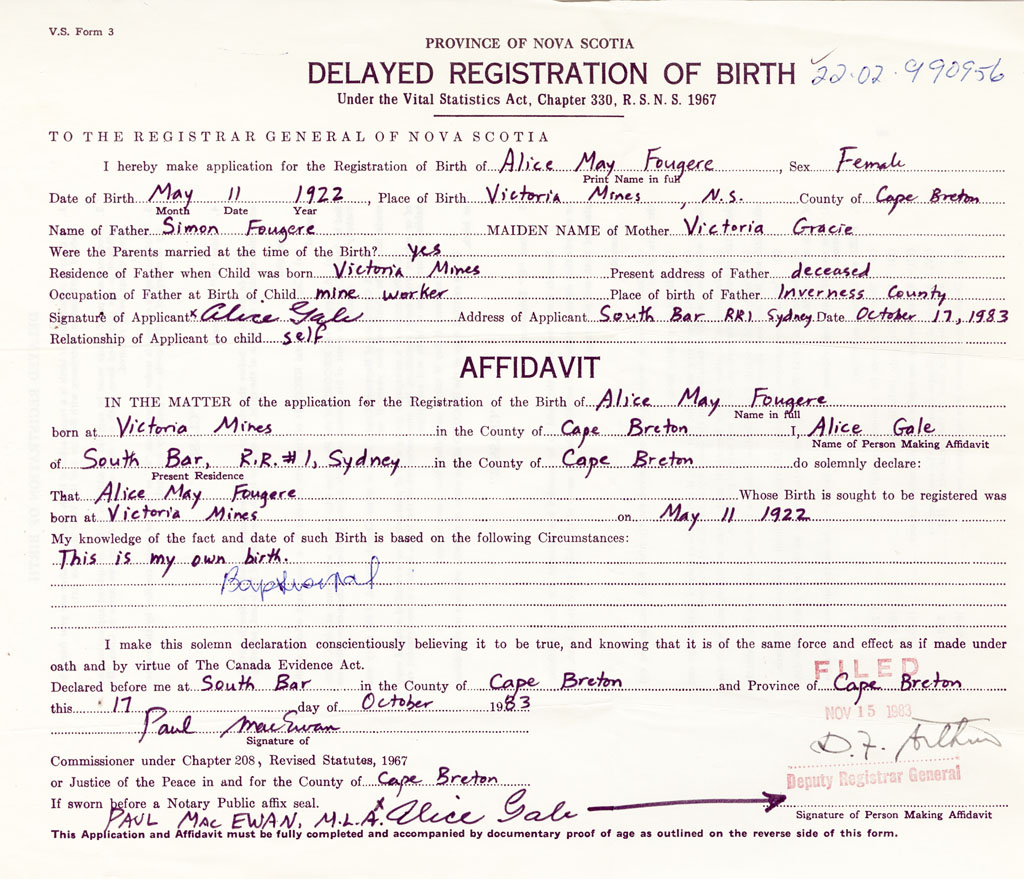 V.S. Form 3
PROVINCE OF NOVA SCOTIA
DELAYED REGISTRATION OF BIRTH 22.02.990956
Under the Vital Statistics Act, Chapter 330, R. S. N. S. 1967
TO THE REGISTRAR GENERAL OF NOVA SCOTIA
I hereby make application for the Registration of Birth of Alice May Fougere, Sex Female
Print Name in full
Date of Birth May 11 1922, Place of Birth Victoria Mines, N.S. County of Cape Breton
Month Date Year
Name of Father Simon Fougere MAIDEN NAME of Mother Victoria Gracie
Were the Parents married at the time of the Birth? yes
Residence of Father when Child was born Victoria Mines Present address of Father deceased
Occupation of Father at Birth of Child mine worker Place of birth of Father Inverness County
Signature of Applicant x Alice Gale Address of Applicant South Bar RR1 Sydney Date October 17, 1983
Relationship of Applicant to child self
AFFIDAVIT
IN THE MATTER of the application for the Registration of the Birth of Alice May Fougere
Name in full
born at Victoria Mines in the County of Cape Breton I, Alice Gale
Name of Person Making Affidavit
of South Bar, R.R.#1, Sydney in the County of Cape Breton do solemnly declare:
Present Residence
That Alice May Fougere Whose Birth is sought to be registered was
born at Victoria Mines on May 11 1922
My knowledge of the fact and date of such Birth is based on the following Circumstances:
This is my own birth.
I make this solemn declaration conscientiously believing it to be true, and knowing that it is of the same force and effect as if made under
oath and by virtue of The Canada Evidence Act.
FILED
Declared before me at South Bar in the County of Cape Breton and Province of Cape Breton
this 17 day of October 1983
NOV 15 1983
Paul MacEwan
D. F. Arthur
Signature of
Commissioner under Chapter 208, Revised Statutes, 1967
Deputy Registrar General
or Justice of the Peace in and for the County of Cape Breton
If sworn before a Notary Public affix seal.
PAUL MAC EWAN, M.L.A. x Alice Gale
Signature of Person Making Affidavit
This Application and Affidavit must be fully completed and accompanied by documentary proof of age as outlined on the reverse side of this form.